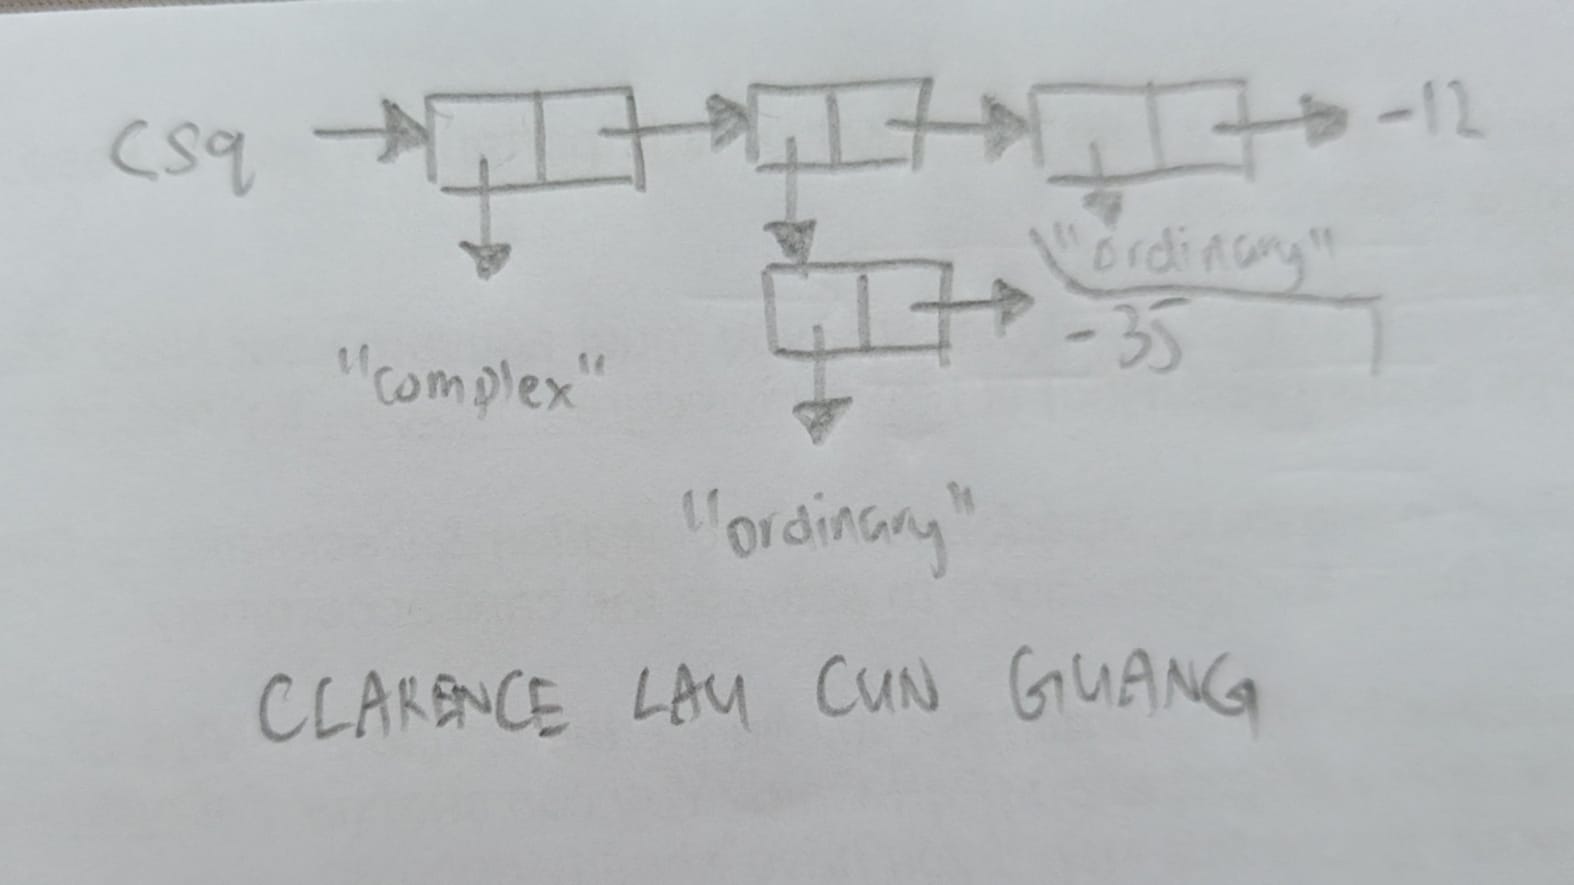 csq -12
"ordinary"
-35
"complex"
"ordinary"
CLARENCE LAU CUN GUANG